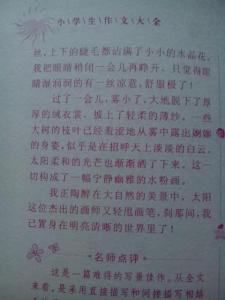 小学生作文大全
丝,上下的睫毛都沾满了小小的水晶花。
我把眼睛稍闭一会儿再睁开,只觉得眼
睛湿润润的有一丝凉意,舒服极了!
过了一会儿,雾小了,大地脱下了厚
厚的绒衣裳,披上了轻柔的薄纱。一些
大树的枝叶已经羞涩地从雾中露出婀娜
的身姿,似乎是在招呼天上淡淡的白云,
太阳柔和的光芒也渐渐洒了下来。这一
切构成了一幅宁静幽雅的水粉画。
我正陶醉在大自然的美景中,太阳
这位杰出的画师又轻甩画笔,刹那间,我
已置身在明亮清晰的世界里了!
名师点评
这是一篇难得的写景佳作。从全文
来看,是采用直接描写和间接描写相结